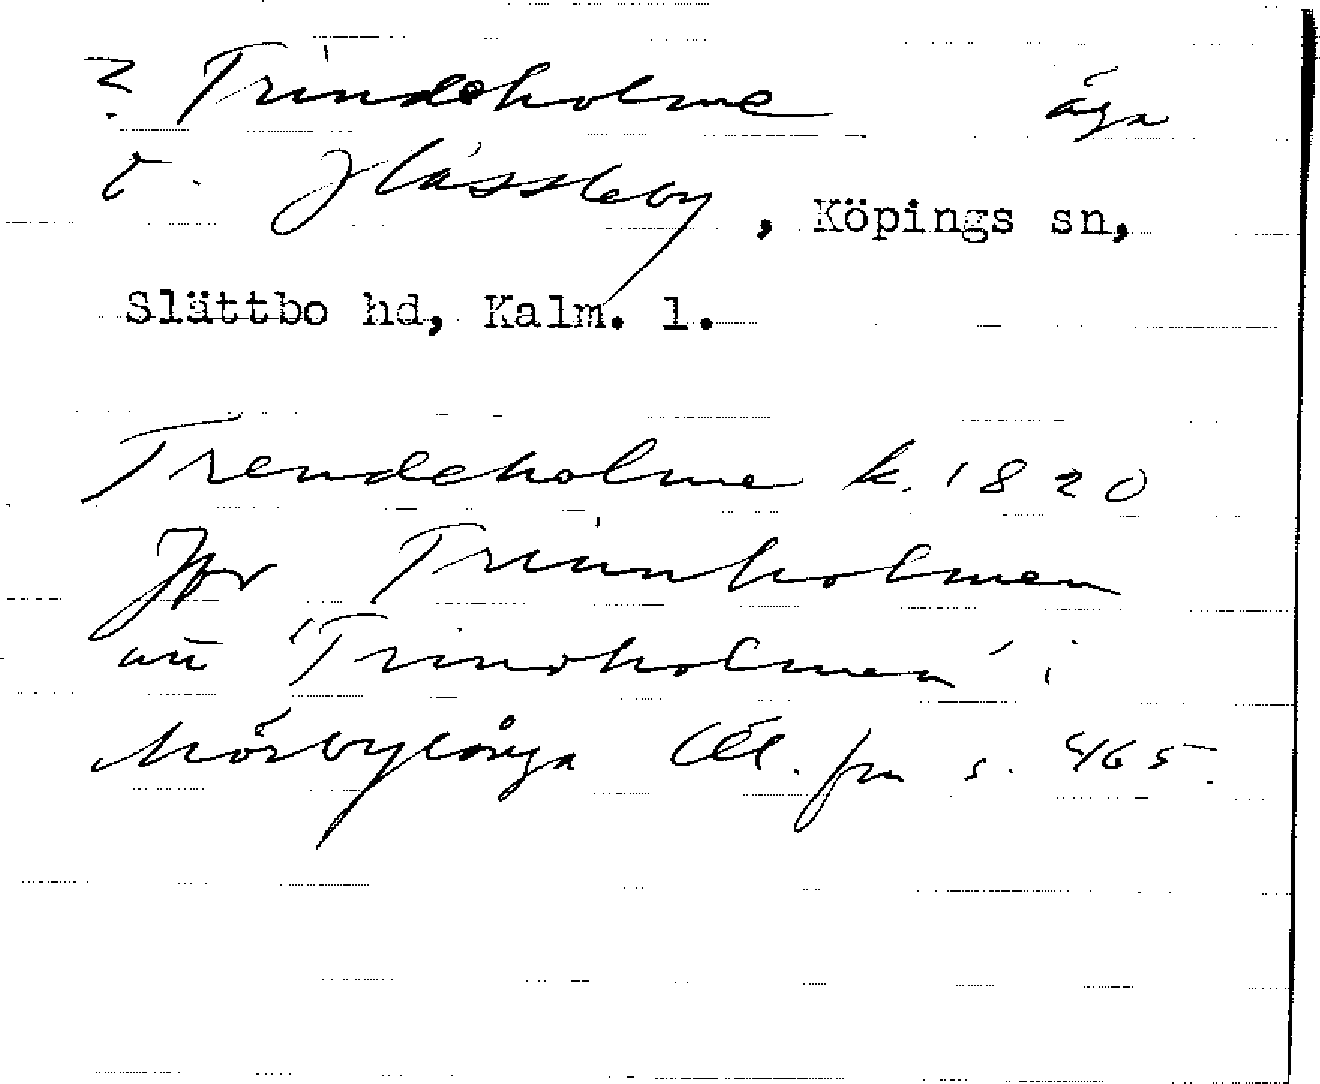 ? Trindeholme äga
Ö. Hässleby, Köpings sn,
Slättbo hd, Kalm. l.
Trendeholme k. 1820
Jfr Trinnholmen
'Trindholmen' i
Mörbylånga Öl. fm s. 465.